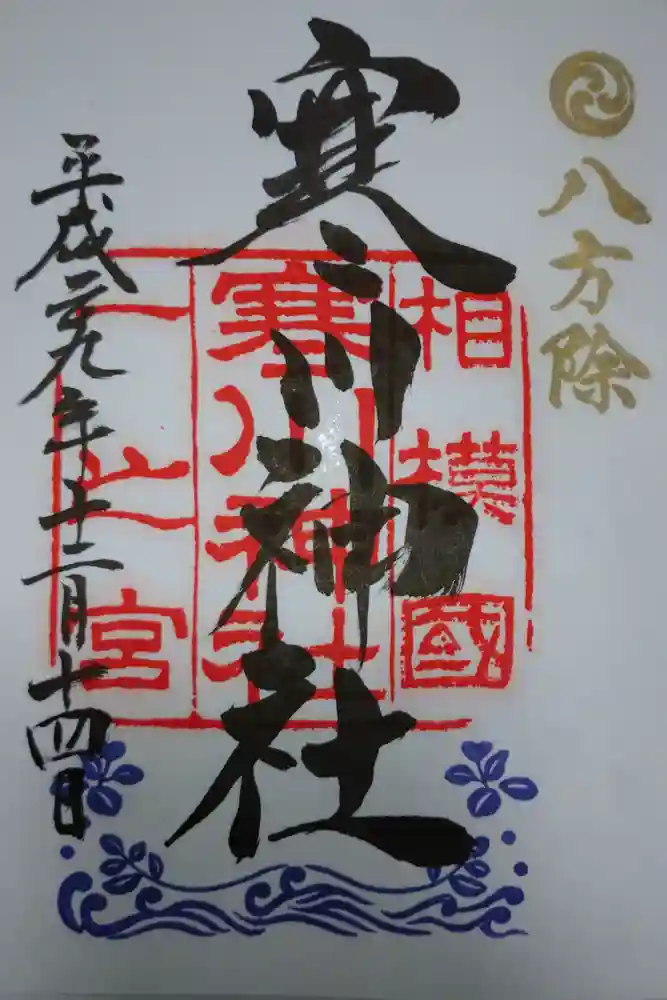 八方除
寒川神社
相模國
寒川神社
一之宮
平成二九年十二月十四日